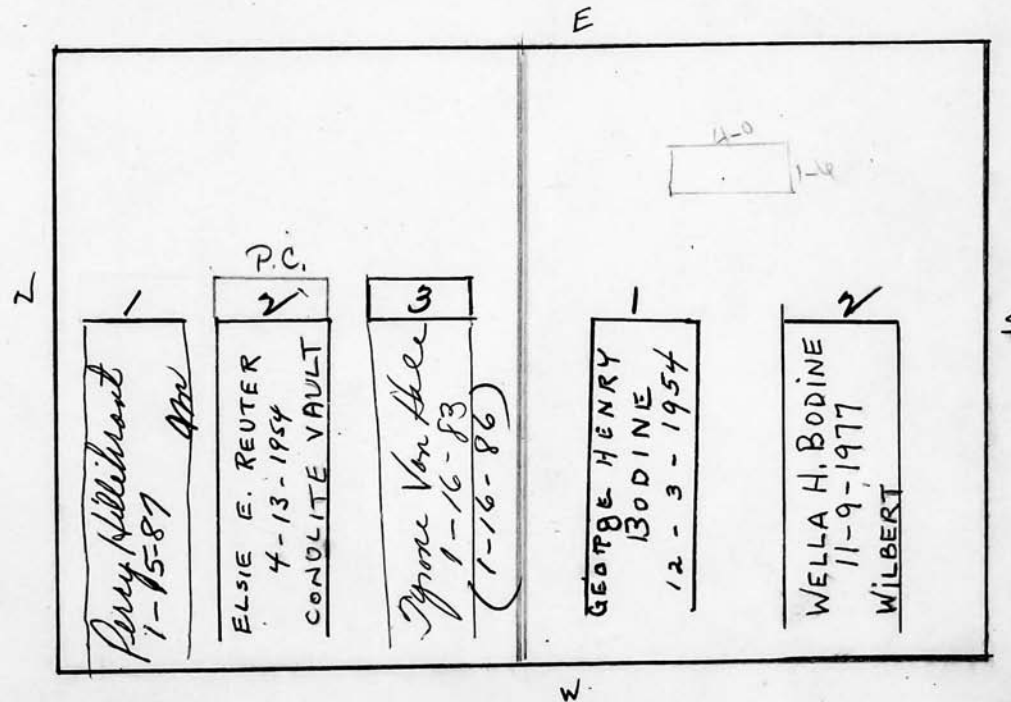 E
N
P.C.
1
Percy Hillibrant
1-15-87
2
ELSIE E. REUTER
4-13-1954
CONOLITE VAULT
3
Tyrone Van Hee
1-16-83
(1-16-86)
4-0
1-6
1
GEORGE HENRY
BODINE
12-3-1954
2
WELLA H. BODINE
11-9-1977
WILBERT
W